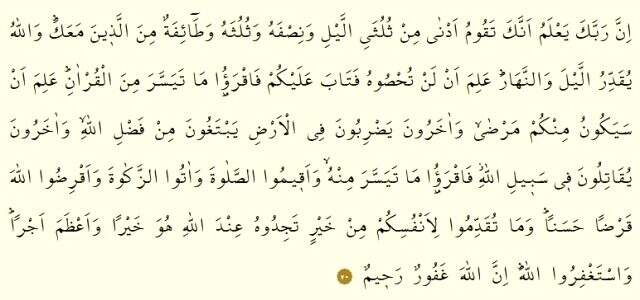 اِنَّ رَبَّكَ يَعْلَمُ اَنَّكَ تَقُومُ اَدْنٰى مِنْ ثُلُثَيِ الَّيْلِ وَنِصْفَهُ وَثُلُثَهُ وَطَٓائِفَةٌ مِنَ الَّذ۪ينَ مَعَكَۜ وَاللّٰهُ
يُقَدِّرُ الَّيْلَ وَالنَّهَارَۜ عَلِمَ اَنْ لَنْ تُحْصُوهُ فَتَابَ عَلَيْكُمْ فَاقْرَؤُ۫ا مَا تَيَسَّرَ مِنَ الْقُرْاٰنِۜ عَلِمَ اَنْ
سَيَكُونُ مِنْكُمْ مَرْضٰىۙ وَاٰخَرُونَ يَضْرِبُونَ فِي الْاَرْضِ يَبْتَغُونَ مِنْ فَضْلِ اللّٰهِۙ وَاٰخَرُونَ
يُقَاتِلُونَ ف۪ي سَب۪يلِ اللّٰهِۘ فَاقْرَؤُ۫ا مَا تَيَسَّرَ مِنْهُۙ وَاَق۪يمُوا الصَّلٰوةَ وَاٰتُوا الزَّكٰوةَ وَاَقْرِضُوا اللّٰهَ
قَرْضًا حَسَنًاۜ وَمَا تُقَدِّمُوا لِاَنْفُسِكُمْ مِنْ خَيْرٍ تَجِدُوهُ عِنْدَ اللّٰهِ هُوَ خَيْرًا وَاَعْظَمَ اَجْرًاۜ
وَاسْتَغْفِرُوا اللّٰهَۜ اِنَّ اللّٰهَ غَفُورٌ رَح۪يمٌ ٢٠